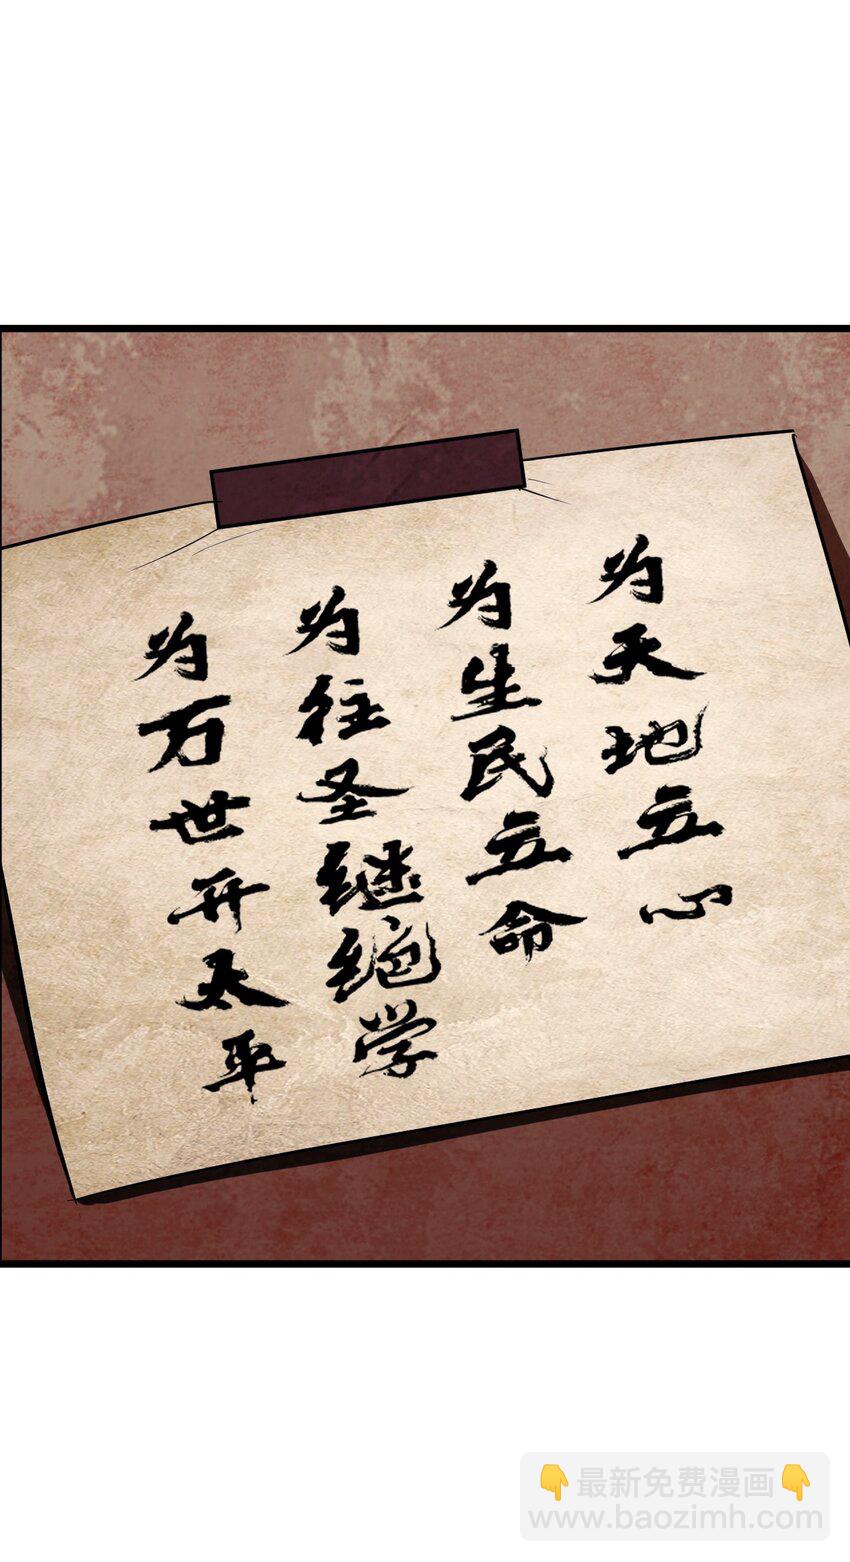 为天地立心
为生民立命
为往圣继绝学
为万世开太平
👇最新免费漫画👇
www.baozimh.com